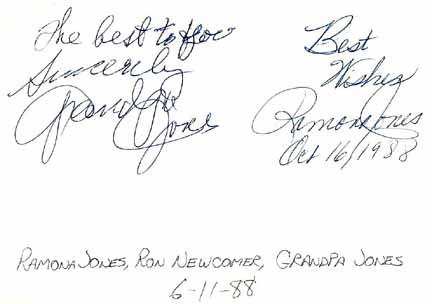 The best to you
Sincerely
Grandpa
Jones
Best
Wishes
Ramona Jones
Oct 16/1988
RAMONA JONES, RON NEWCOMER, GRANDPA JONES
6-11-88